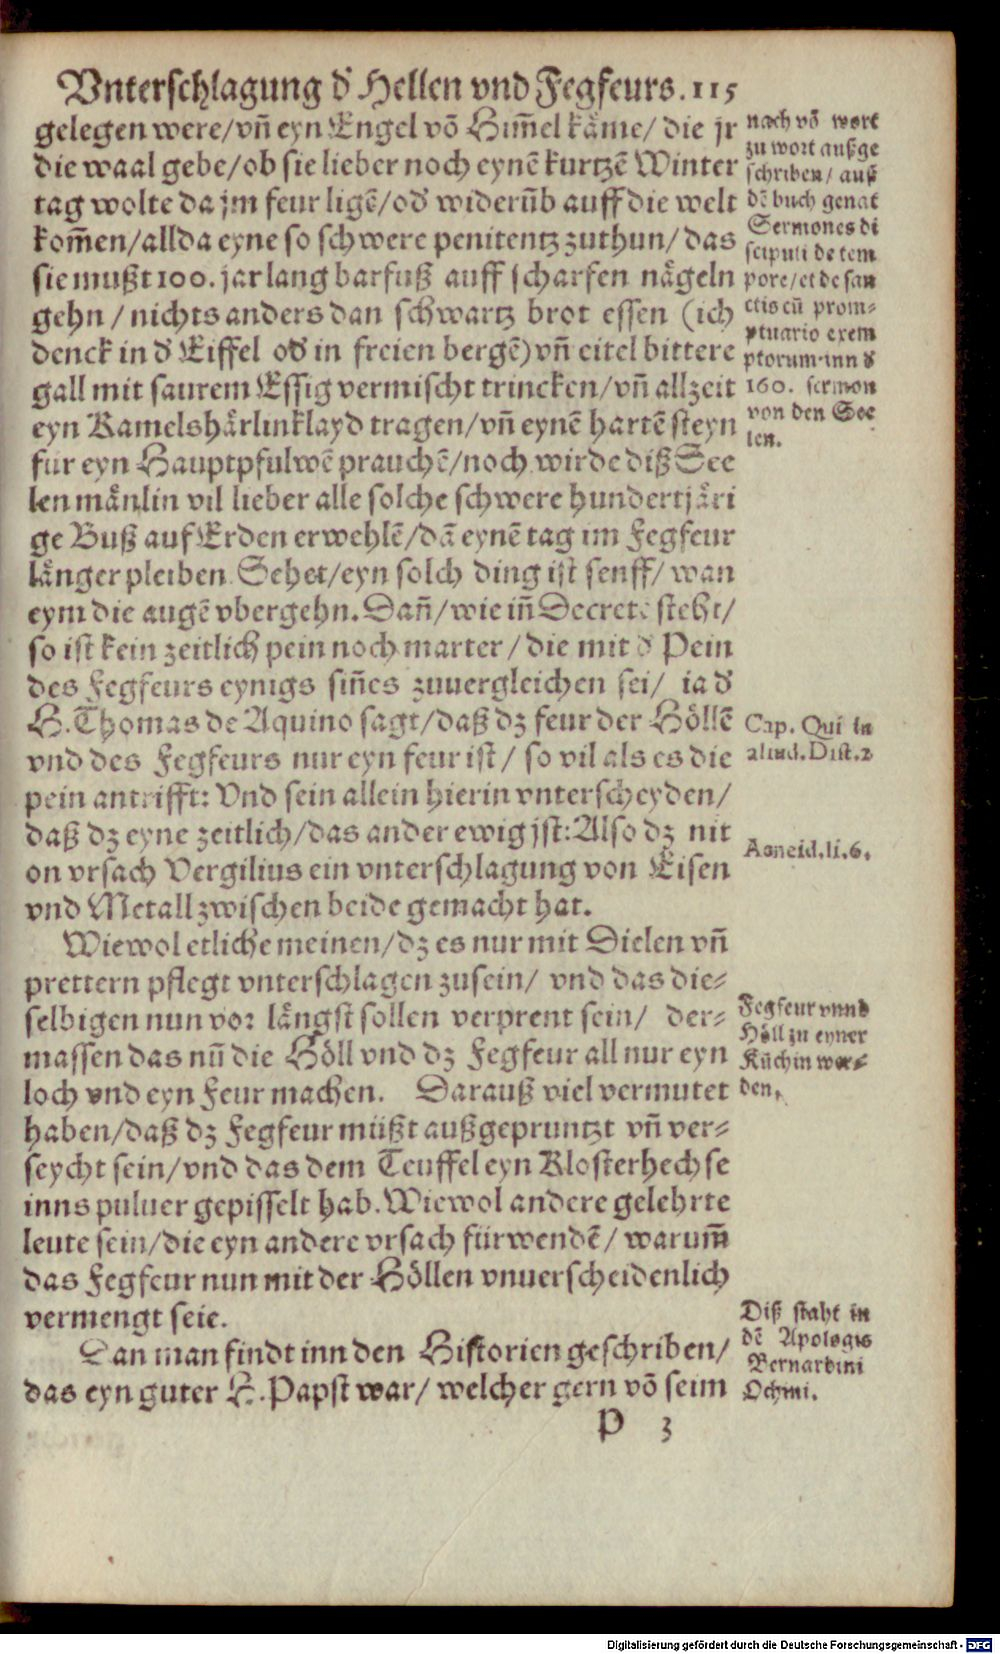 Vnterschlagung d' Hellen vnd Fegfeurs. 115
gelegen were/vn̄ eyn Engel võ Him̄el käme/ die jr
die waal gebe/ob sie lieber noch eynẽ kurtzẽ Winter
tag wolte da jm feur ligẽ/od' widerũb auff die welt
kom̄en/allda eyne so schwere penitentz zuthun/ das
sie mußt 100. jar lang barfuß auff scharfen nägeln
gehn / nichts anders dan schwartz brot essen (ich
denck in d' Eiffel od' in freien bergẽ) vn̄ eitel bittere
gall mit saurem Essig vermischt trincken/ vn̄ allzeit
eyn Kamelshärlinklayd tragen/vn̄ eynẽ hartẽ steyn
für eyn Hauptpfulwẽ prauchẽ/noch wirde diß See
len mänlin vil lieber alle solche schwere hundertjäri
ge Buß auf Erden erwehlẽ/dã eynẽ tag im Fegfeur
länger pleiben. Sehet/eyn solch ding ist senff/ wan
eym die augẽ vbergehn. Dan̄/wie in̄ Decrete steht/
so ist kein zeitlich pein noch marter / die mit d' Pein
des Fegfeurs eynigs sin̄es zuuergleichen sei/ ia d'
H. Thomas de Aquino sagt/daß dz feur der Höllẽ
vnd des Fegfeurs nur eyn feur ist/ so vil als es die
pein antrifft: Vnd sein allein hierin vnterscheyden/
daß dz eyne zeitlich/das ander ewig jst: Also dz nit
on vrsach Vergilius ein vnterschlagung von Eisen
vnd Metall zwischen beide gemacht hat.
Wiewol etliche meinen/dz es nur mit Dielen vn̄
prettern pflegt vnterschlagen zusein/ vnd das die-
selbigen nun vor längst sollen verprent sein/ der-
massen das nũ die Höll vnd dz Fegfeur all nur eyn
loch vnd eyn Feur machen. Darauß viel vermutet
haben/daß dz Fegfeur müßt außgepruntzt vn̄ ver-
seycht sein/vnd das dem Teuffel eyn Klosterhechse
inns puluer gepisselt hab. Wiewol andere gelehrte
leute sein/die eyn andere vrsach fürwendẽ/ warum̄
das Fegfeur nun mit der Höllen vnuerscheidenlich
vermengt seie.
Dan man findt inn den Historien geschriben/
das eyn guter H. Papst war/ welcher gern võ seim
P 3
nach võ wort
zu wort außge
schriben/ auß
dẽ buch genãt
Sermones di
scipuli de tem
pore/et de san
ctis cũ prom-
ptuario exem
plorum: inn d'
160. sermon
von den See
len.
Cap. Qui in
aliud. Dist. 2
Aeneid. li. 6.
Fegfeur vnnd
Höll zu eyner
Küchin wor-
den.
Diß staht in
dẽ Apologis
Bernardini
Ochini.
Digitalisierung gefördert durch die Deutsche Forschungsgemeinschaft - DFG